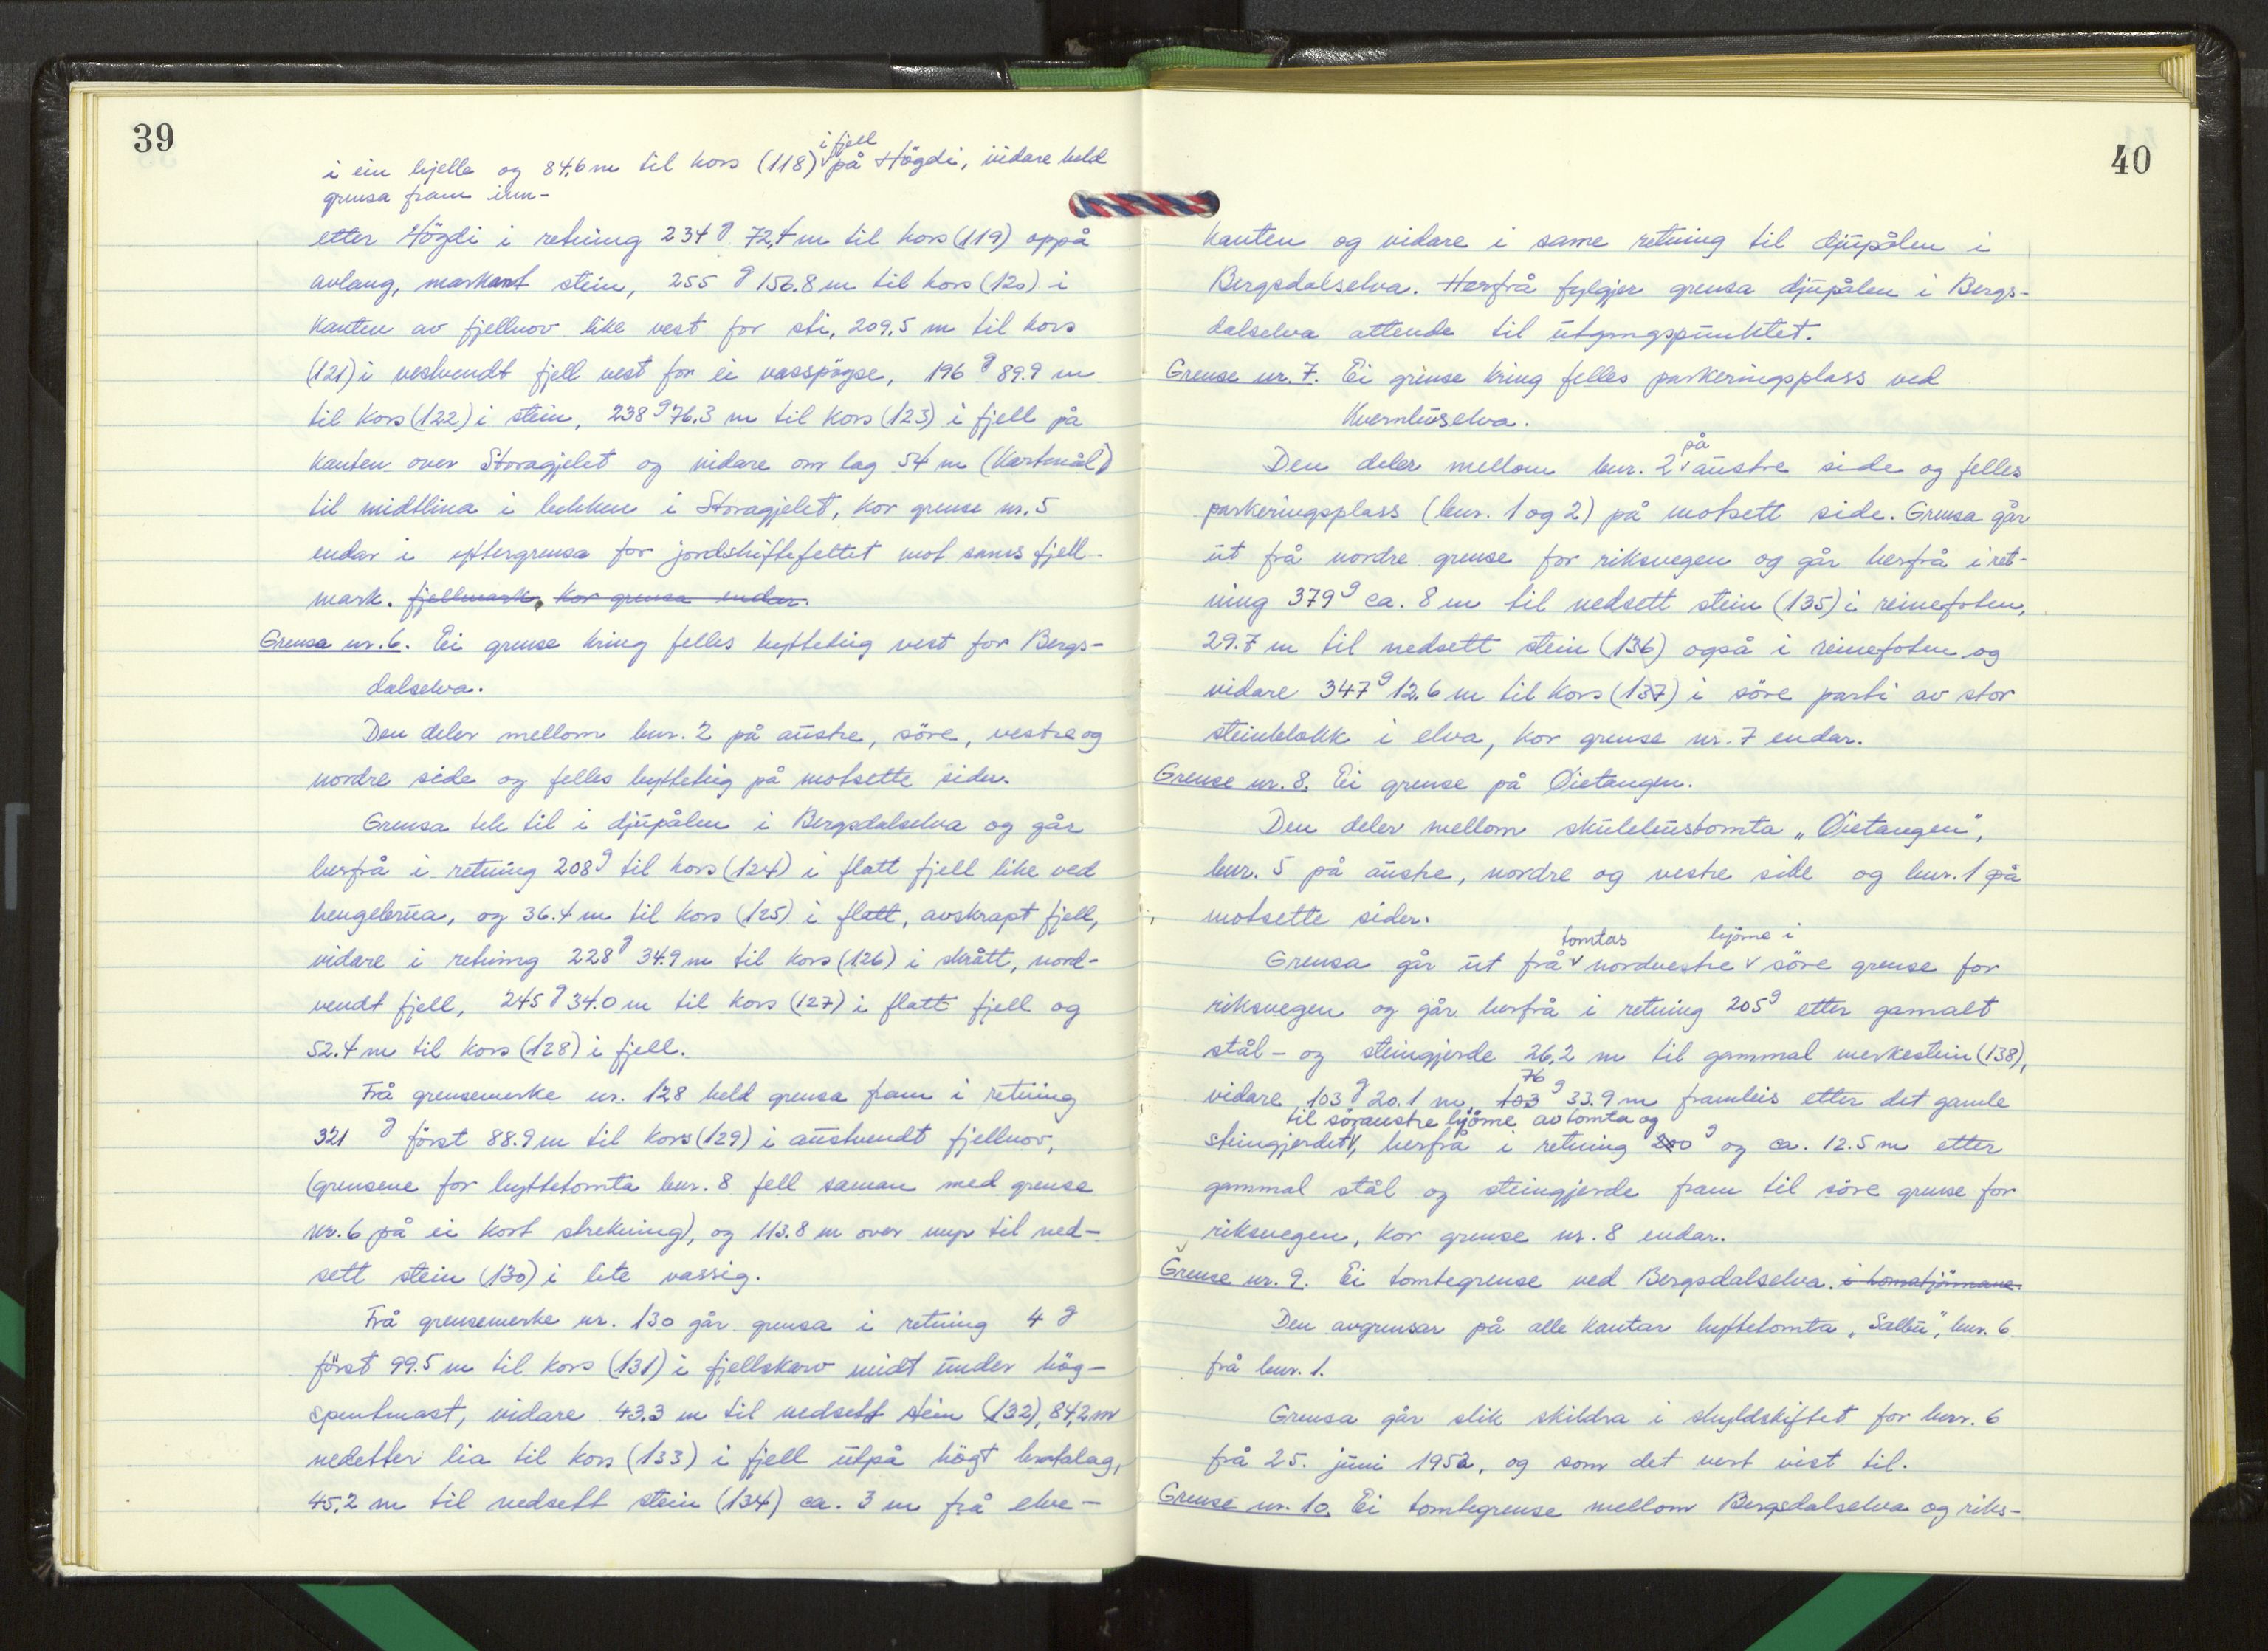 39
i ein hjelle og 84,6 m til kors (118) i fjell på Högdi, vidare held
grensa fram inn-
etter Högdi i retning 234 g 72,4 m til kors (119) oppå
avlang, markant stein, 255 g 156.8 m til kors (120) i
kanten av fjellnov like vest for sti, 209,5 m til kors
(121) i vestvendt fjell vest for ei vasspögse, 196 g 89.9 m
til kors (122) i stein, 238 g 76.3 m til kors (123) i fjell på
kanten over Storagjelet og vidare om lag 54 m (kartmål)
til midtlina i bekken i Storagjelet, kor grense nr. 5
endar i yttergrensa for jordskiftefeltet mot sams fjell-
mark. fjellmark, kor grensa endar.
Grensa nr. 6. Ei grense kring felles hyttehug vest for Bergs-
dalselva.
Den deler mellom bnr. 2 på austre, söre, vestre og
nordre side og felles hyttehug på motsette sider.
Grensa tek til i djupålen i Bergsdalselva og går
herfrå i retning 208 g til kors (124) i flatt fjell like ved
hengebrua, og 36.4 m til kors (125) i flatt, avskrapt fjell,
vidare i retning 228 g 34.9 m til kors (126) i skrått, nord-
vendt fjell, 245 g 34.0 m til kors (127) i flatt fjell og
52.4 m til kors (128) i fjell.
Frå grensemerke nr. 128 held grensa fram i retning
321 g först 88.9 m til kors (129) i austvendt fjellnov,
(grensene for hyttetomta bnr. 8 fell saman med grense
nr. 6 på ei kort strekning), og 113.8 m over myr til ned-
sett stein (130) i lite vassig.
Frå grensemerke nr. 130 går grensa i retning 4 g
först 99.5 m til kors (131) i fjellskarv midt under hög-
spentmast, vidare 43.3 m til nedsett stein (132), 84,2 m
nedetter lia til kors (133) i fjell utpå högt brattalag,
45,2 m til nedsett stein (134) ca. 3 m frå elve-
40
kanten og vidare i same retning til djupålen i
Bergsdalselva. Herfrå fylgjer grensa djupålen i Bergs-
dalselva attende til utgangspunktet.
Grense nr. 7. Ei grense kring felles parkeringsplass ved
Kvernhuselva.
Den deler mellom bnr. 2 på austre side og felles
parkeringsplass (bnr. 1 og 2) på motsett side. Grensa går
ut frå nordre grense for riksvegen og går herfrå i ret-
ning 379 g ca. 8 m til nedsett stein (135) i reinefoten,
29.7 m til nedsett stein (136) også i reinefoten og
vidare 347 g 12.6 m til kors (137) i söre parti av stor
steinblokk i elva, kor grense nr. 7 endar.
Grense nr. 8. Ei grense på Öietangen.
Den deler mellom skulehustomta „Öietangen",
bnr. 5 på austre, nordre og vestre side og bnr. 1 på
motsette sider.
Grensa går ut frå tomtas nordvestre hjörne i söre grense for
riksvegen og går herfrå i retning 205 g etter gamalt
stål- og steingjerde 26,2 m til gammal merkestein (138),
vidare 103 g 20.1 m, 103 76 g 33.9 m framleis etter det gamle
steingjerdet til söraustre hjörne av tomta og, herfrå i retning 200 g og ca. 12.5 m etter
gammal stål og steingjerde fram til söre grense for
riksvegen, kor grense nr. 8 endar.
Grense nr. 9. Ei tomtegrense ved Bergsdalselva. i tomatjörnane.
Den avgrensar på alle kantar hyttetomta „Salbu", bnr. 6
frå bnr. 1.
Grensa går slik skildra i skyldskiftet for bnr. 6
frå 25. juni 1952, og som det vert vist til.
Grense nr. 10. Ei tomtegrense mellom Bergsdalselva og riks-